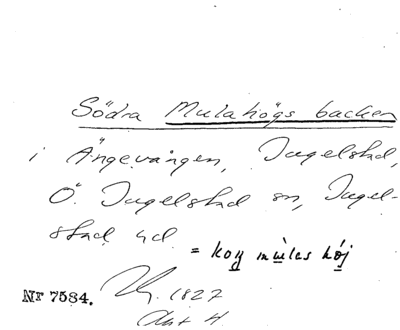 Södra Mulahögs backen
i Ängevången, Ingelstad,
Ö. Ingelstad sn, Ingel-
stad hd
= koŋ mùlas hǿj
Nr 7584.
1827
Akt 4